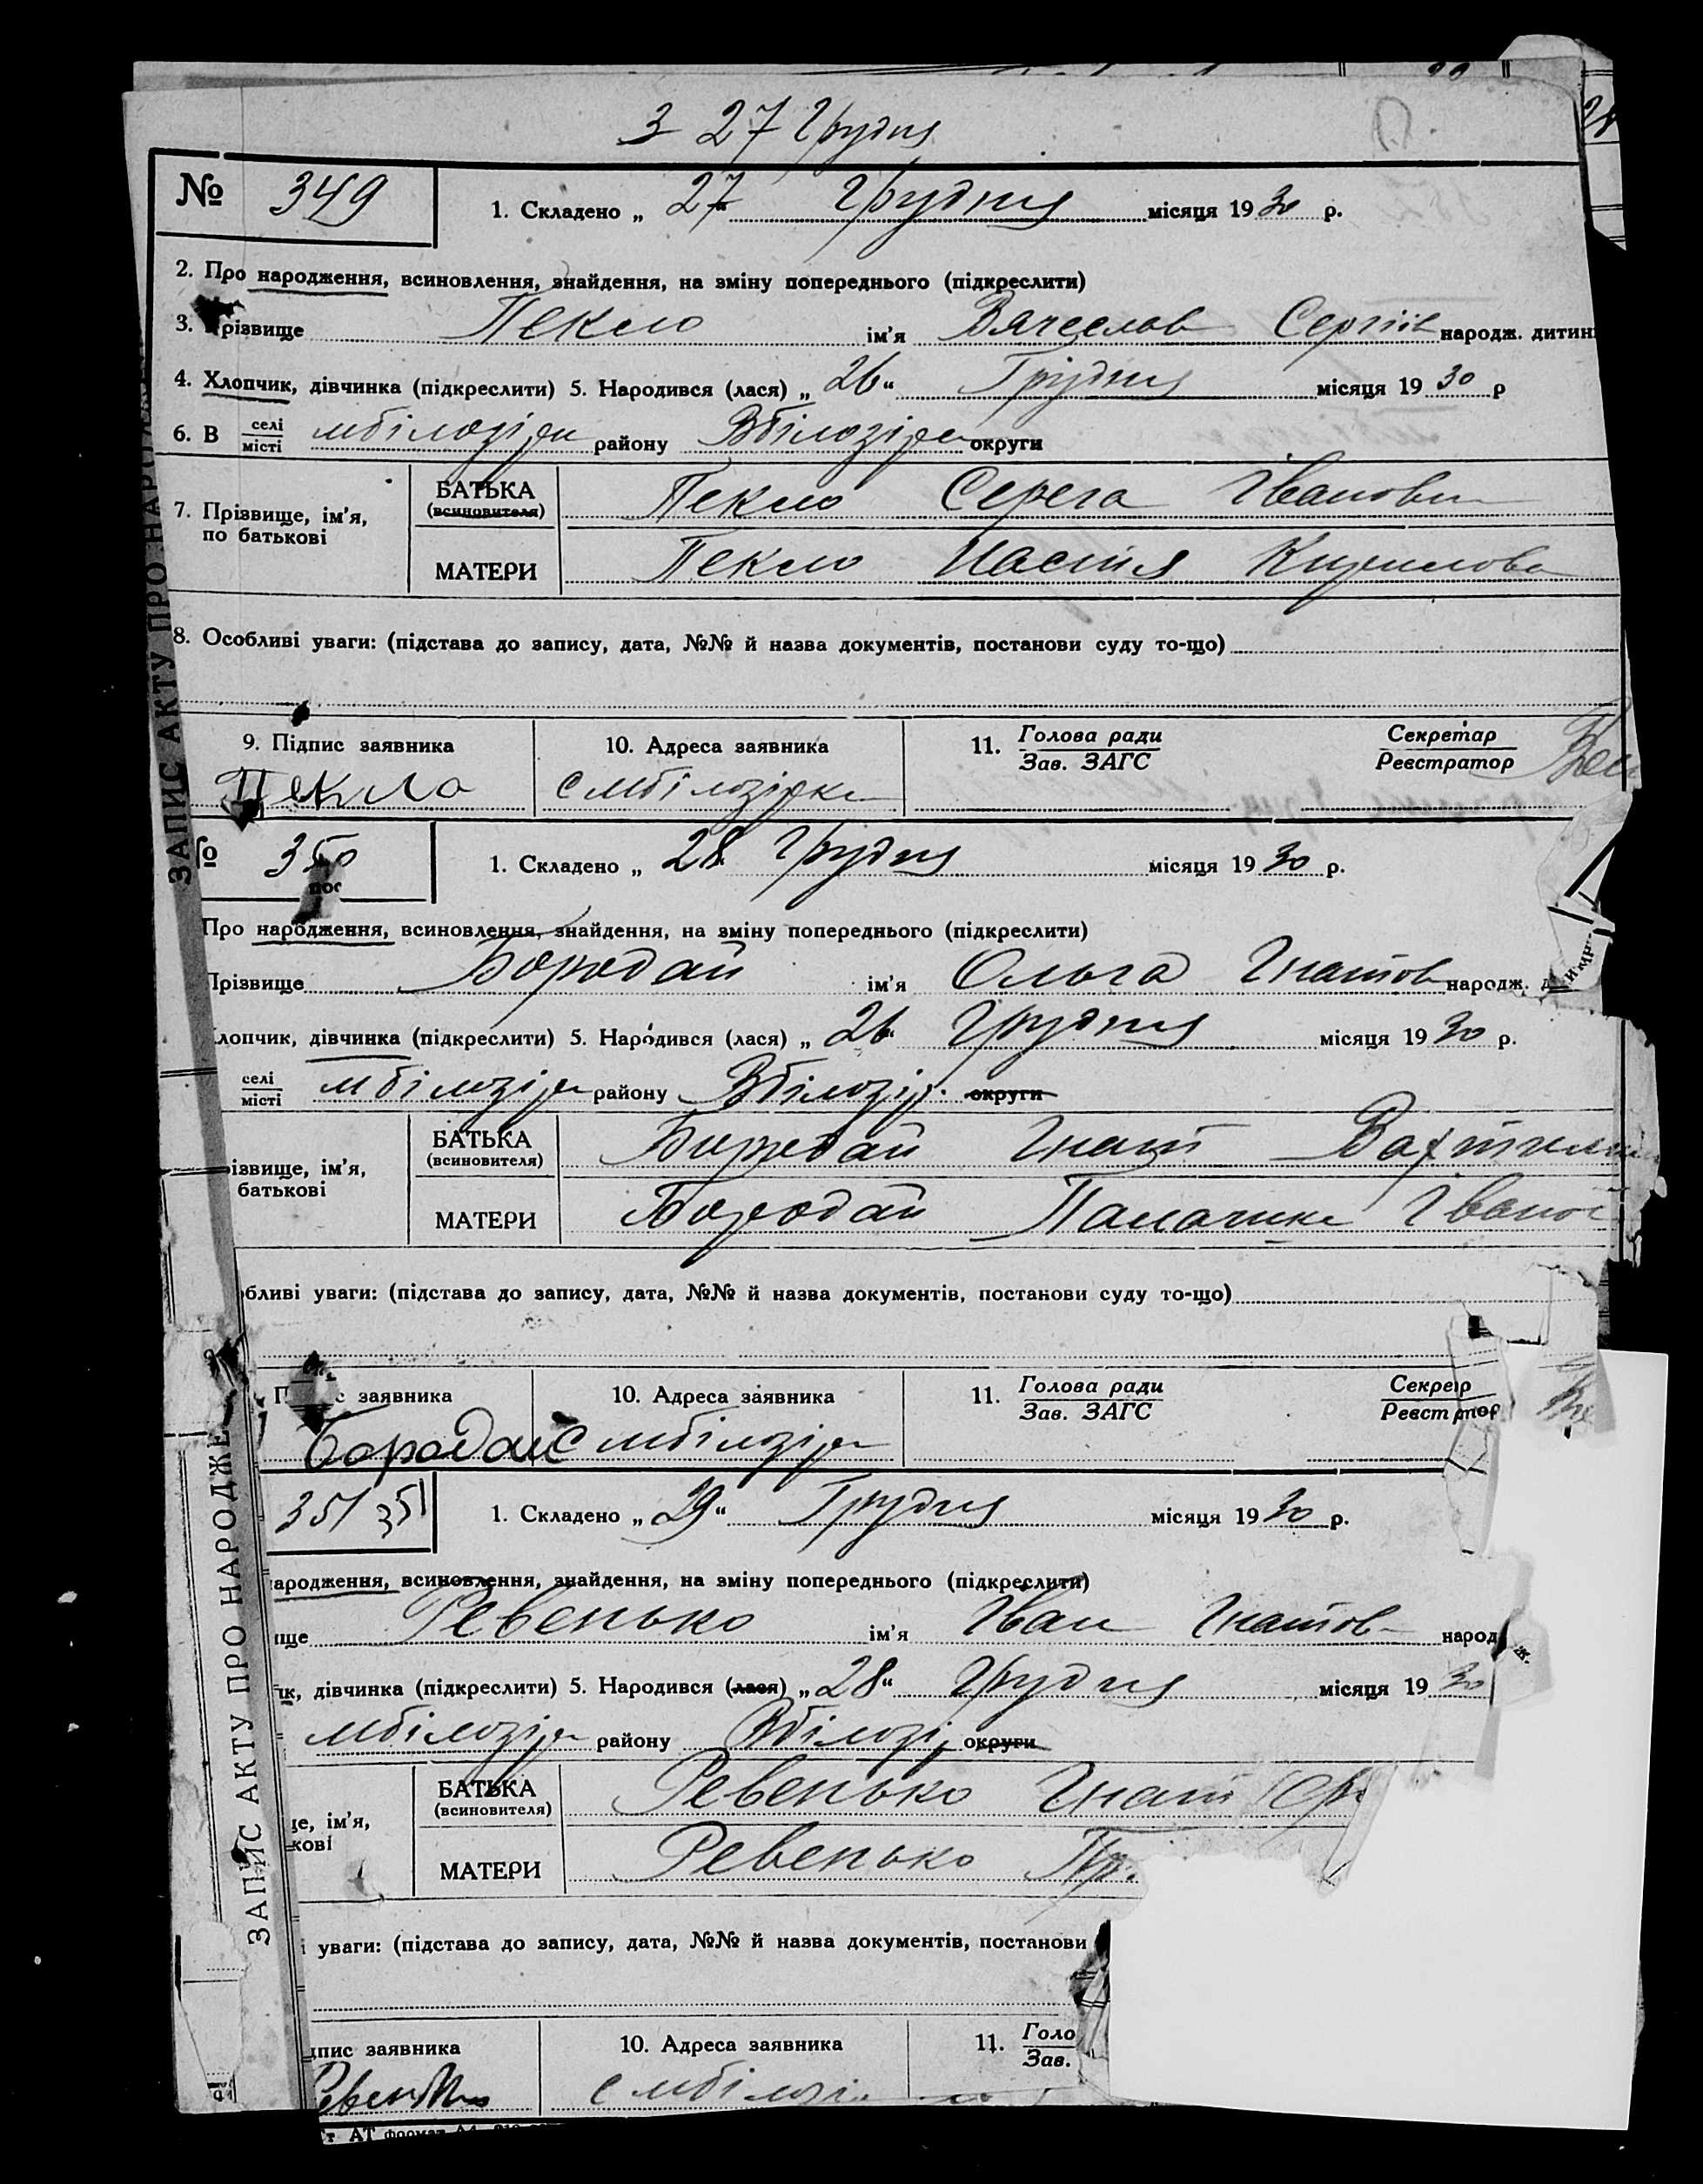 З 27 Грудня
№ 349 1. Складено „ 27 “ Грудня місяця 1930 р.
2. Про народження, всиновлення, знайдення, на зміну попереднього (підкреслити)
3. різвище Пекло ім'я Вячеслав Сергіїв народж. дитин
4. Хлопчик, дівчинка (підкреслити) 5. Народився (лася) „ 26 “ Грудня місяця 1930 р
6. В селі місті мбілозірки району Вбілозірс округи
7. Прізвище, ім'я, по батькові
БАТЬКА (всиновителя) Пекло Серега Іванови
МАТЕРИ Пекло Настя Кирилова
8. Особливі уваги: (підстава до запису, дата, №№ й назва документів, постанови суду то-що)
9. Підпис заявника 10. Адреса заявника 11. Голова ради Зав. ЗАГС Секретар Реєстратор
Пекло с мбілозірка
ЗАПИС АКТУ ПРО НАРОД
№ 350 1. Складено „ 28 Грудня місяця 1930 р.
Про народження, всиновлення, знайдення, на зміну попереднього (підкреслити)
Прізвище Бородай ім'я Ольга Гнатов народж. д
лопчик, дівчинка (підкреслити) 5. Народився (лася) „ 26 “ Грудня місяця 1930 р.
селі місті мбілозір району Вбілозір. округи
ізвище, ім'я, батькові
БАТЬКА (всиновителя) Бородай Гнат
МАТЕРИ Бородай Палажка Іванов
бливі уваги: (підстава до запису, дата, №№ й назва документів, постанови суду то-що)
П с заявника 10. Адреса заявника 11. Голова ради Зав. ЗАГС Секрер Реєст тор
Бородай с мбілозір
351 351 1. Складено „ 29 “ Грудня місяця 1930 р.
ародження, всиновлення, знайдення, на зміну попереднього (підкреслити)
ще Ревенько ім'я Іван Гнатов народ ж.
ик, дівчинка (підкреслити) 5. Народився (лася) „ 28 “ Грудня місяця 1930
мбілозір району Вбілозі округи
ще, ім'я, кові
БАТЬКА (всиновителя) Ревенько Гнат
МАТЕРИ Ревенько Пр.
і уваги: (підстава до запису, дата, №№ й назва документів, постанови
ЗАПИС АКТУ ПРО НАРОДЖЕ
дпис заявника 10. Адреса заявника 11. Голо Зав.
Ревенько с мбілозі